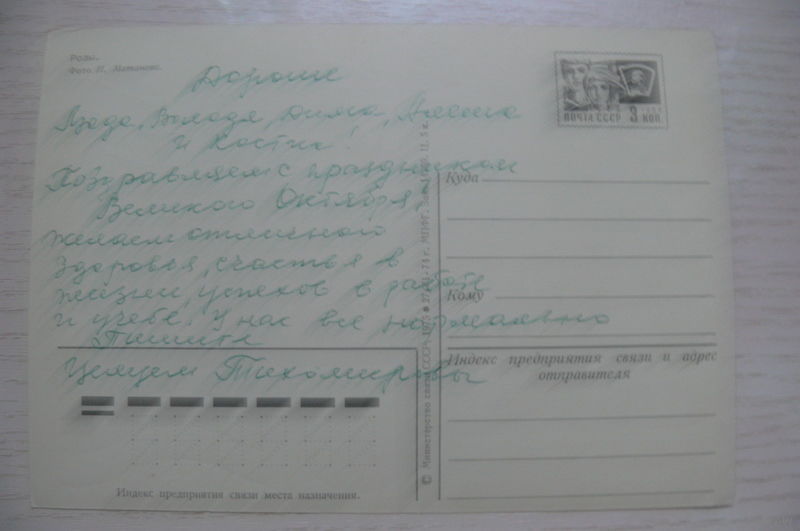 Розы.
Фото И. Матанова.
Дорогие
Лада, Володя, Дима, Алеша
и Костя!
Поздравляем с праздником
Великого Октября,
желаем отличного
здоровья, счастья в
жизни, успехов в работе
и учебе. У нас все нормально
Пишите
Целуем Тихомировы
ПОЧТА СССР 3 КОП.
Куда
Кому
Индекс предприятия связи и адрес
отправителя
Индекс предприятия связи места назначения.
© Министерство связи СССР, 1975